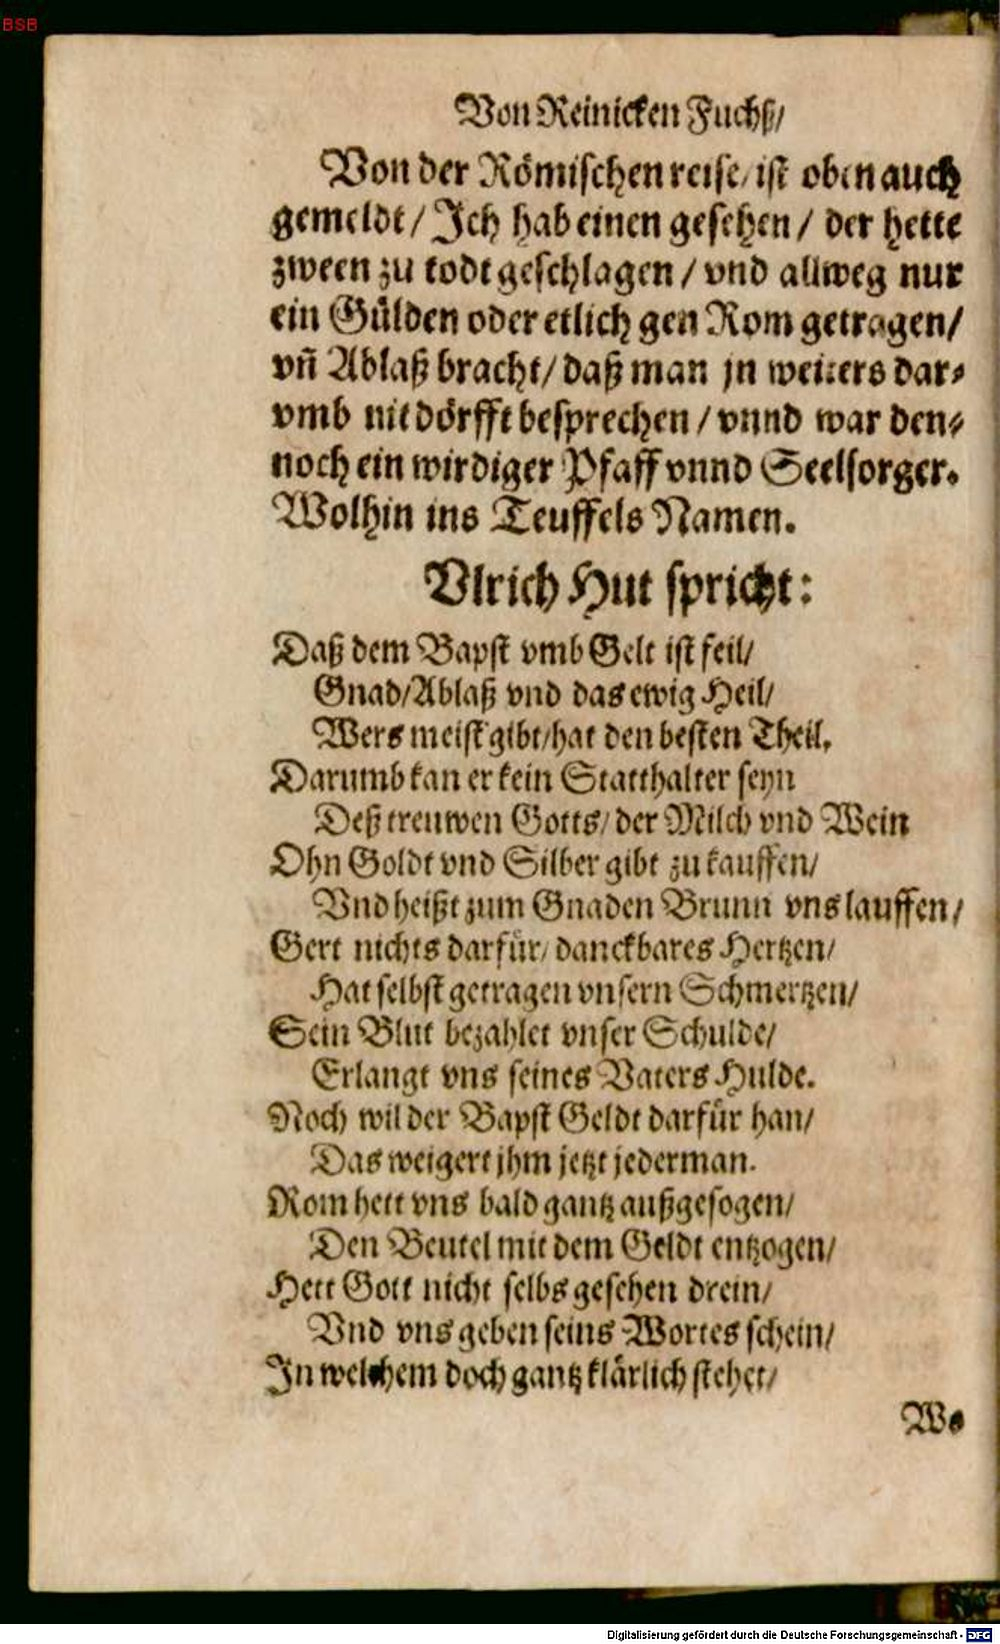 BSB
Von Reinicken Fuchß/
Von der Römischen reise/ ist oben auch
gemeldt/ Ich hab einen gesehen/ der hette
zween zu todt geschlagen/ vnd allweg nur
ein Gülden oder etlich gen Rom getragen/
vñ Ablaß bracht/ daß man jn weiters dar-
vmb nit dörfft besprechen/ vnnd war den-
noch ein wirdiger Pfaff vnnd Seelsorger.
Wolhin ins Teuffels Namen.
Vlrich Hut spricht:
Daß dem Bapst vmb Gelt ist feil/
Gnad/Ablaß vnd das ewig Heil/
Wers meist gibt/hat den besten Theil.
Darumb kan er kein Statthalter seyn
Deß treuwen Gotts/ der Milch vnd Wein
Ohn Goldt vnd Silber gibt zu kauffen/
Vnd heißt zum Gnaden Brunn vns lauffen/
Gert nichts darfür/ danckbares Hertzen/
Hat selbst getragen vnsern Schmertzen/
Sein Blut bezahlet vnser Schulde/
Erlangt vns seines Vaters Hulde.
Noch wil der Bapst Geldt darfür han/
Das weigert jhm jetzt jederman.
Rom hett vns bald gantz außgesogen/
Den Beutel mit dem Geldt entzogen/
Hett Gott nicht selbs gesehen drein/
Vnd vns geben seins Wortes schein/
In welchem doch gantz klärlich stehet/
Wo
Digitalisierung gefördert durch die Deutsche Forschungsgemeinschaft - DFG